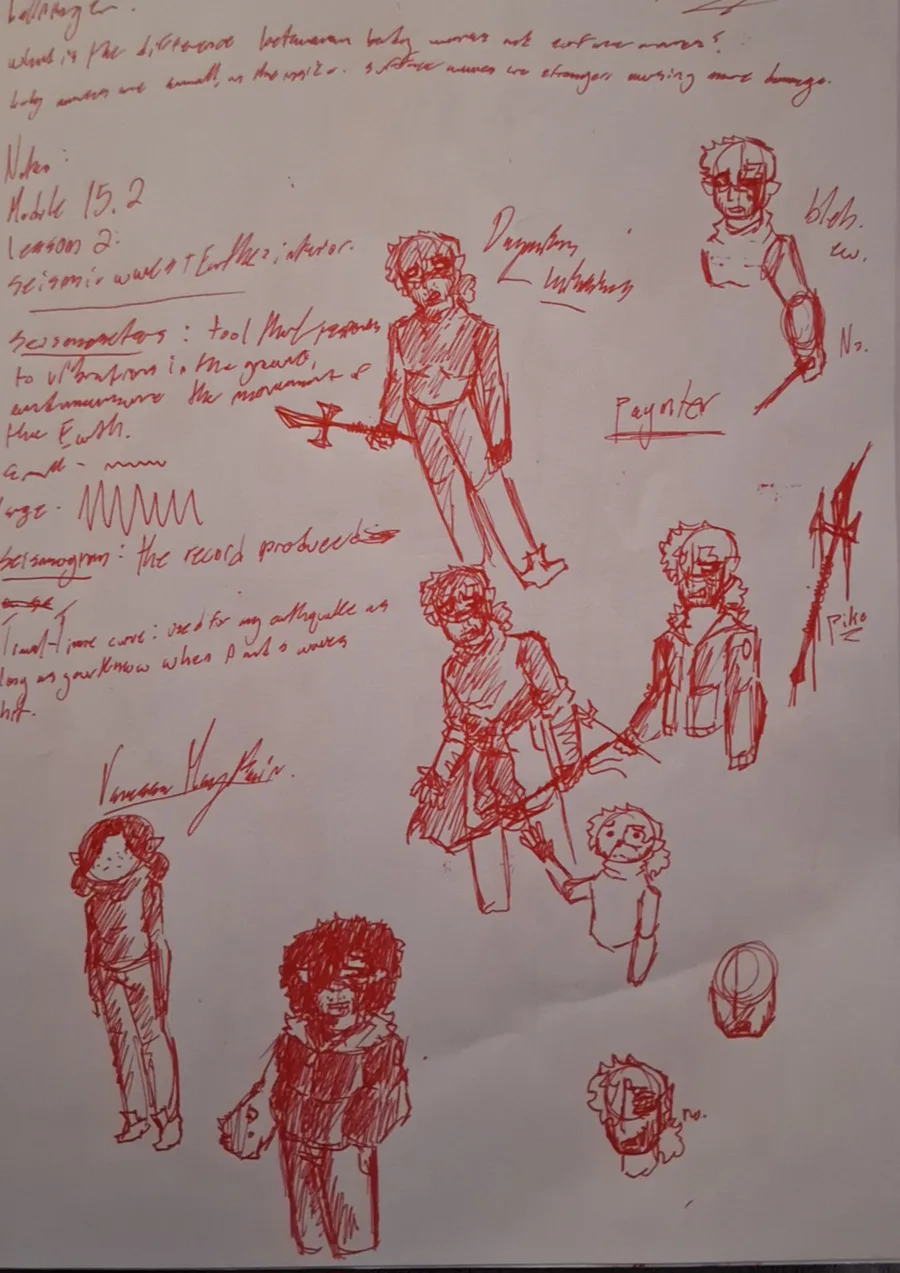 what is the difference between body waves and surface waves?
body waves are small, on the inside. surface waves are stronger causing more damage.
Notes:
Module 15.2
Lesson 2:
Seismic waves + Earth's interior.
Seismometers : tool that responds
to vibrations in the ground,
and measure the movement of
the Earth.
small -
large -
Seismogram : the record produced
Travel-Time curve : used for any earthquake as
long as you know when P and S waves
hit.
bleh.
ew.
No.
Paynter
Pike
Vanessa
no.